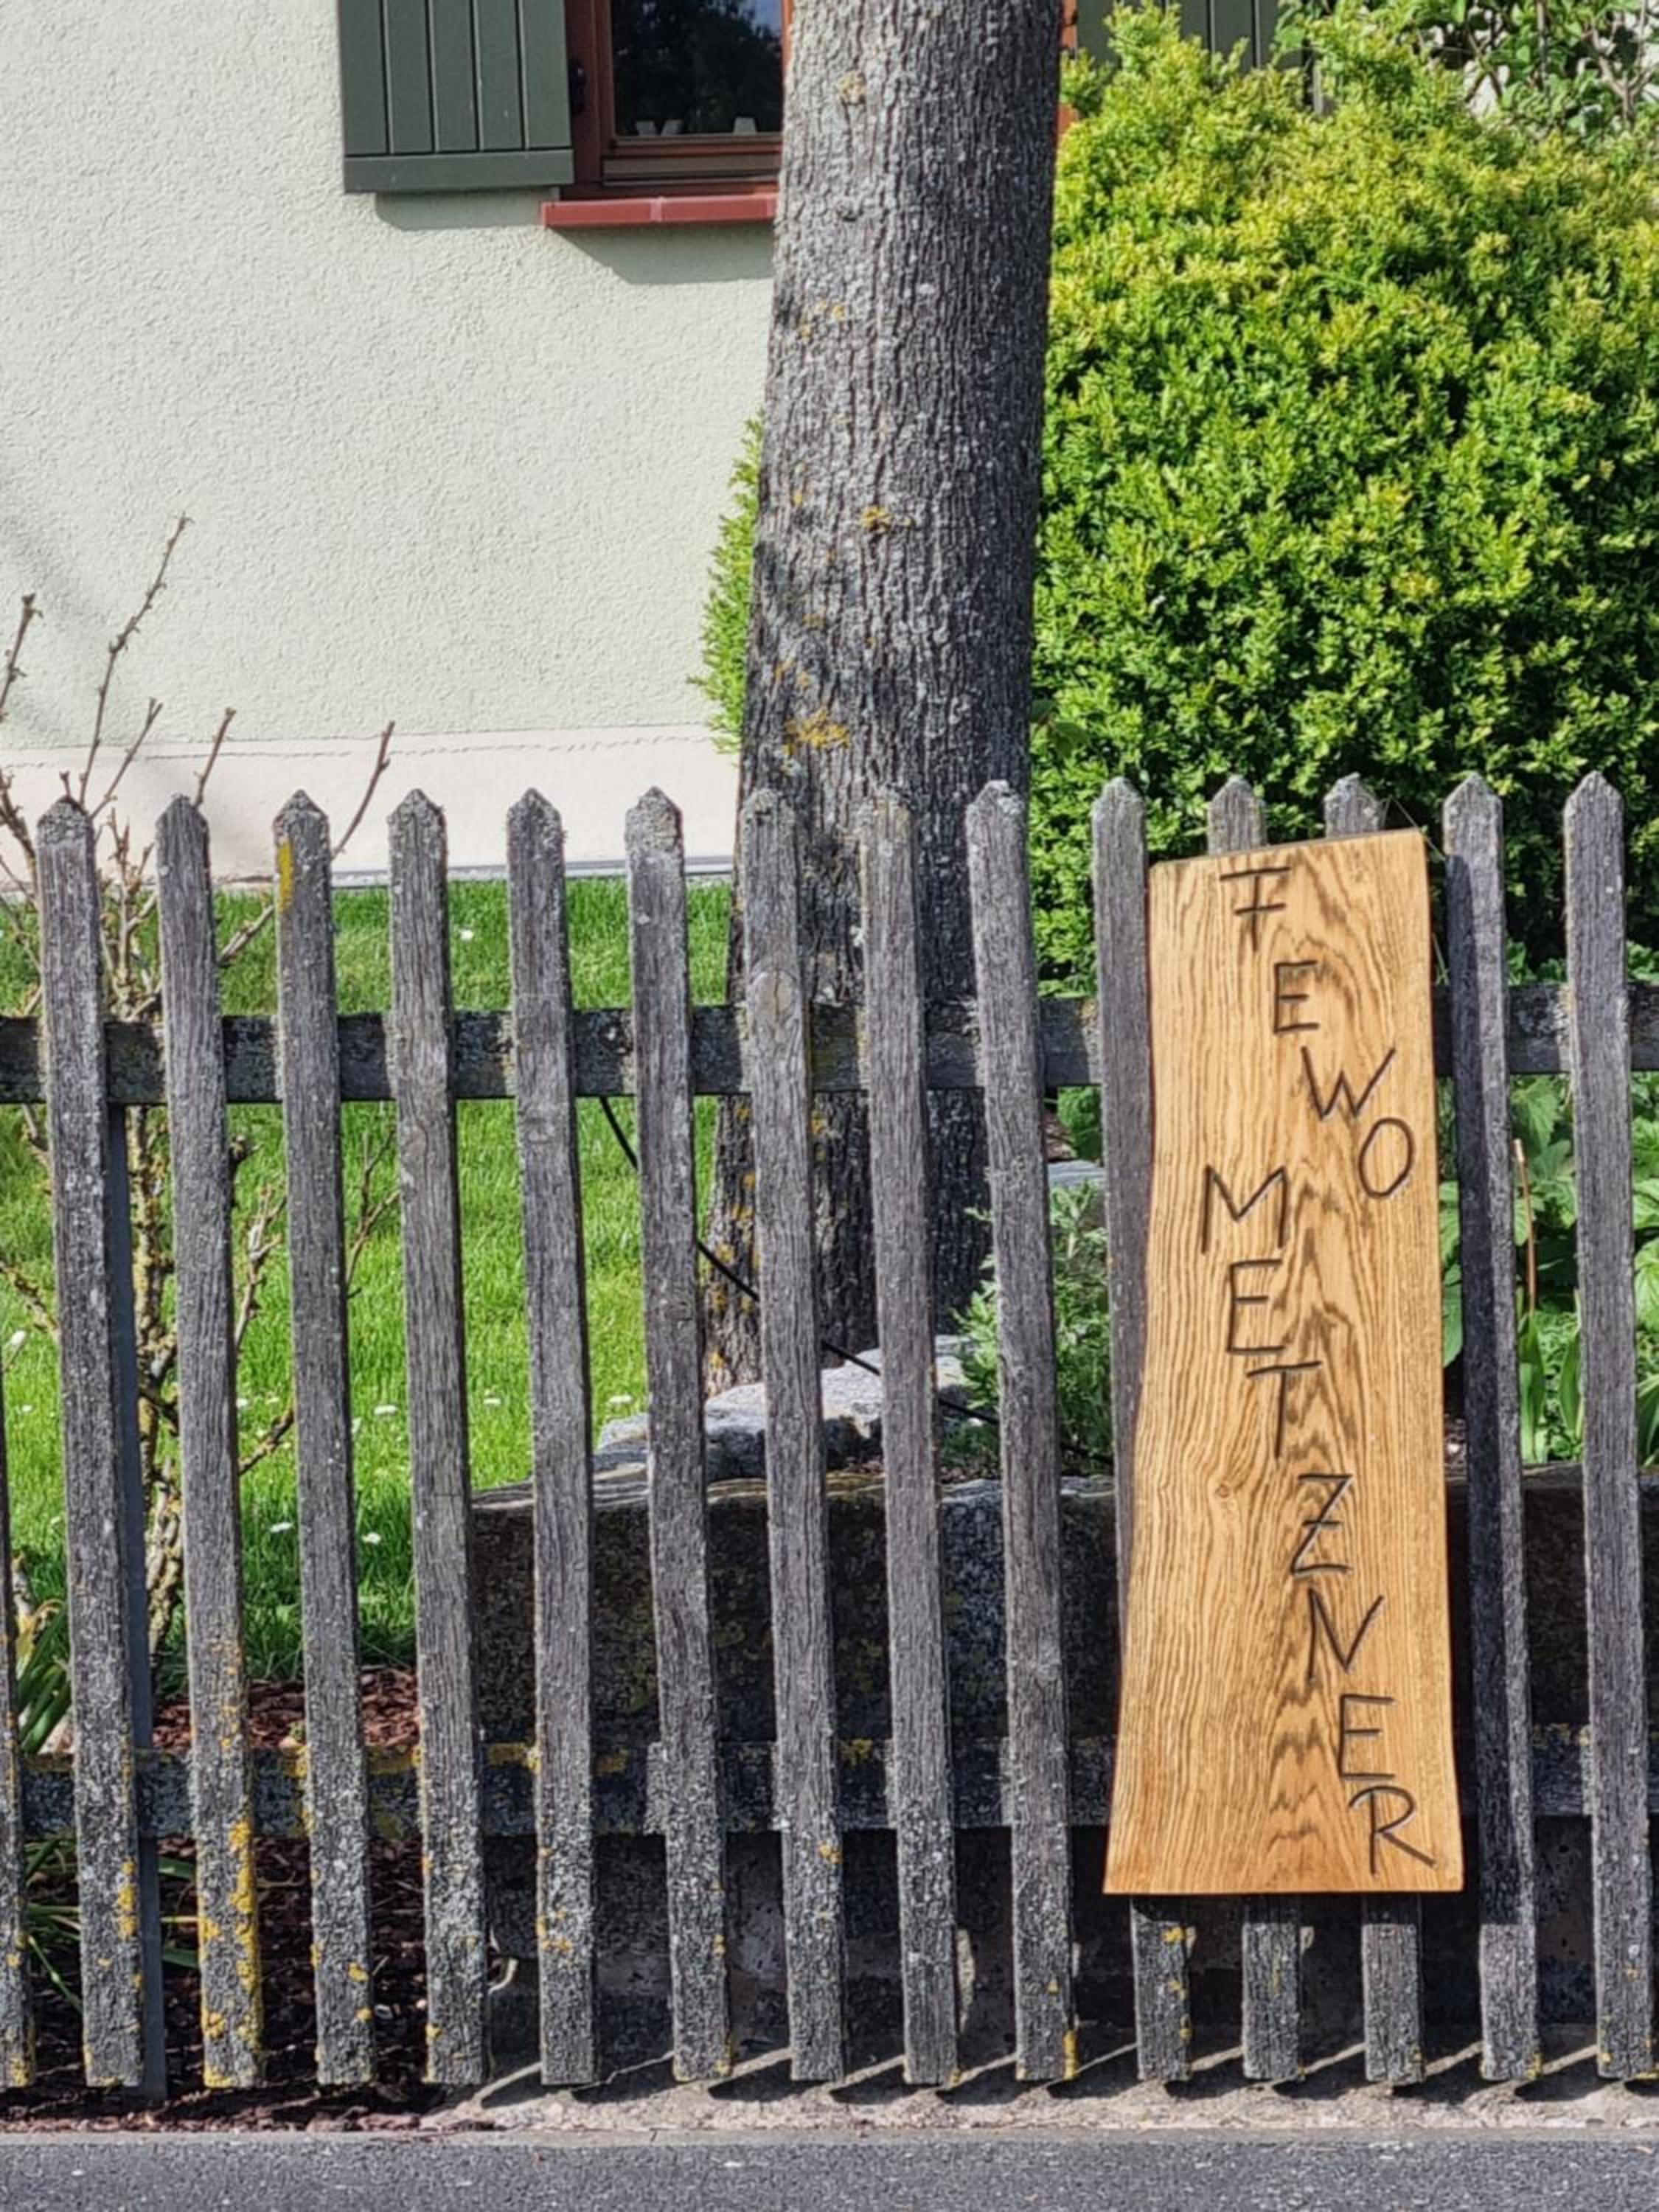 FEWO
METZNER